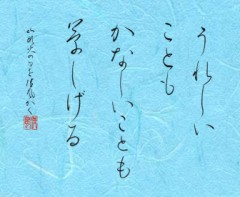 うれしい
ことも
かなしいことも
草しげる
山頭火の句を